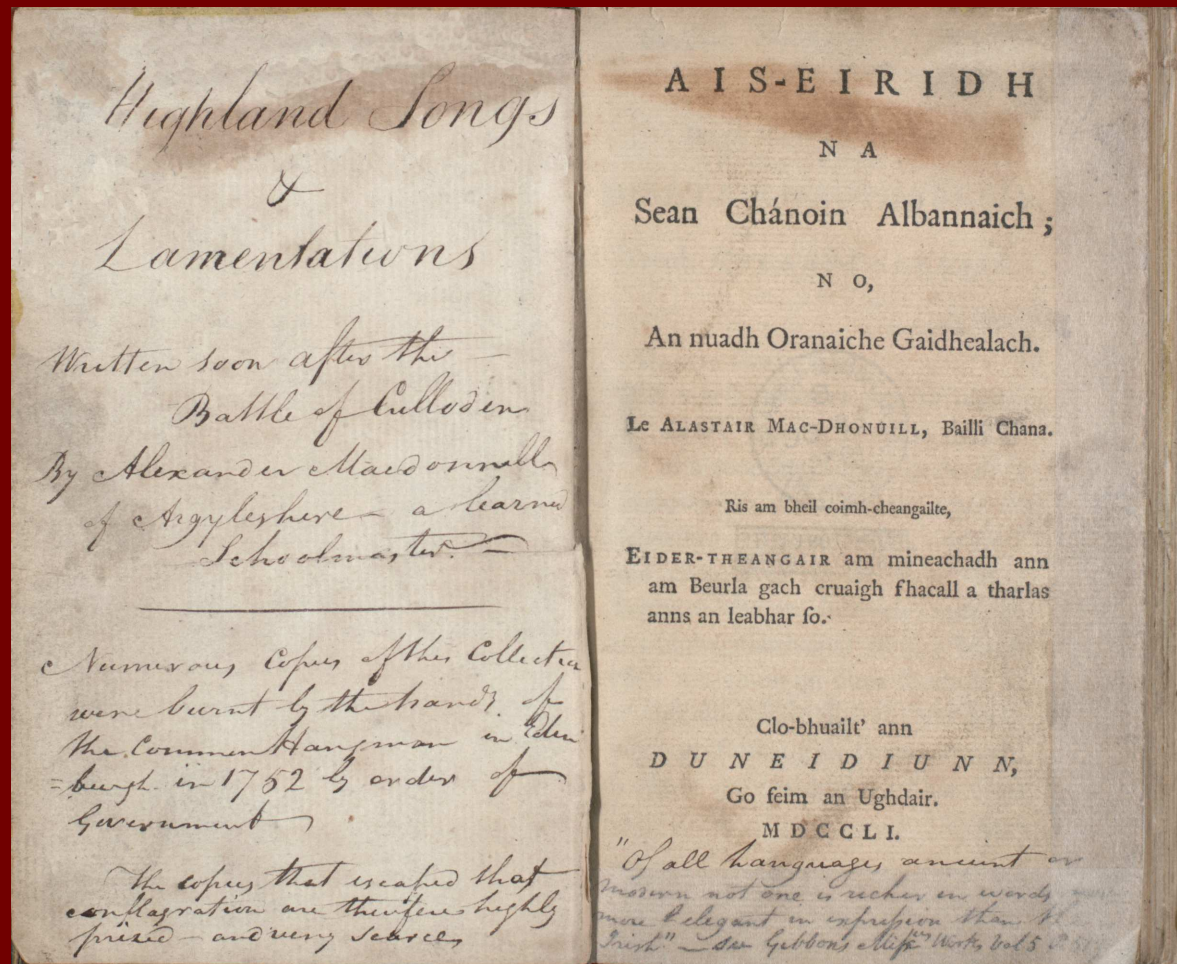 Highland Songs
&
Lamentations
Written soon after the
Battle of Culloden
By Alexander Macdonnell
of Argyleshire a learned
Schoolmaster.
Numerous Copies of this Collection
were burnt by the hands of
the Common Hangman in Edin
=burgh in 1752 by order of
Government
The copies that escaped that
conflagration are therefore highly
prized – and very scarce
AIS-EIRIDH
NA
Sean Chánoin Albannaich;
NO,
An nuadh Oranaiche Gaidhealach.
Le ALASTAIR MAC-DHONUILL, Bailli Chana.
Ris am bheil coimh-cheangailte,
EIDER-THEANGAIR am mineachadh ann
am Beurla gach cruaigh fhacall a tharlas
anns an leabhar ſo.
Clo-bhuailt' ann
DUNEIDIUNN,
Go feim an Ughdair.
MDCCLI.
"Of all Languages ancient or
modern not one is richer in words
more elegant in expression than
Irish" – see Gibbons Works Vol 5